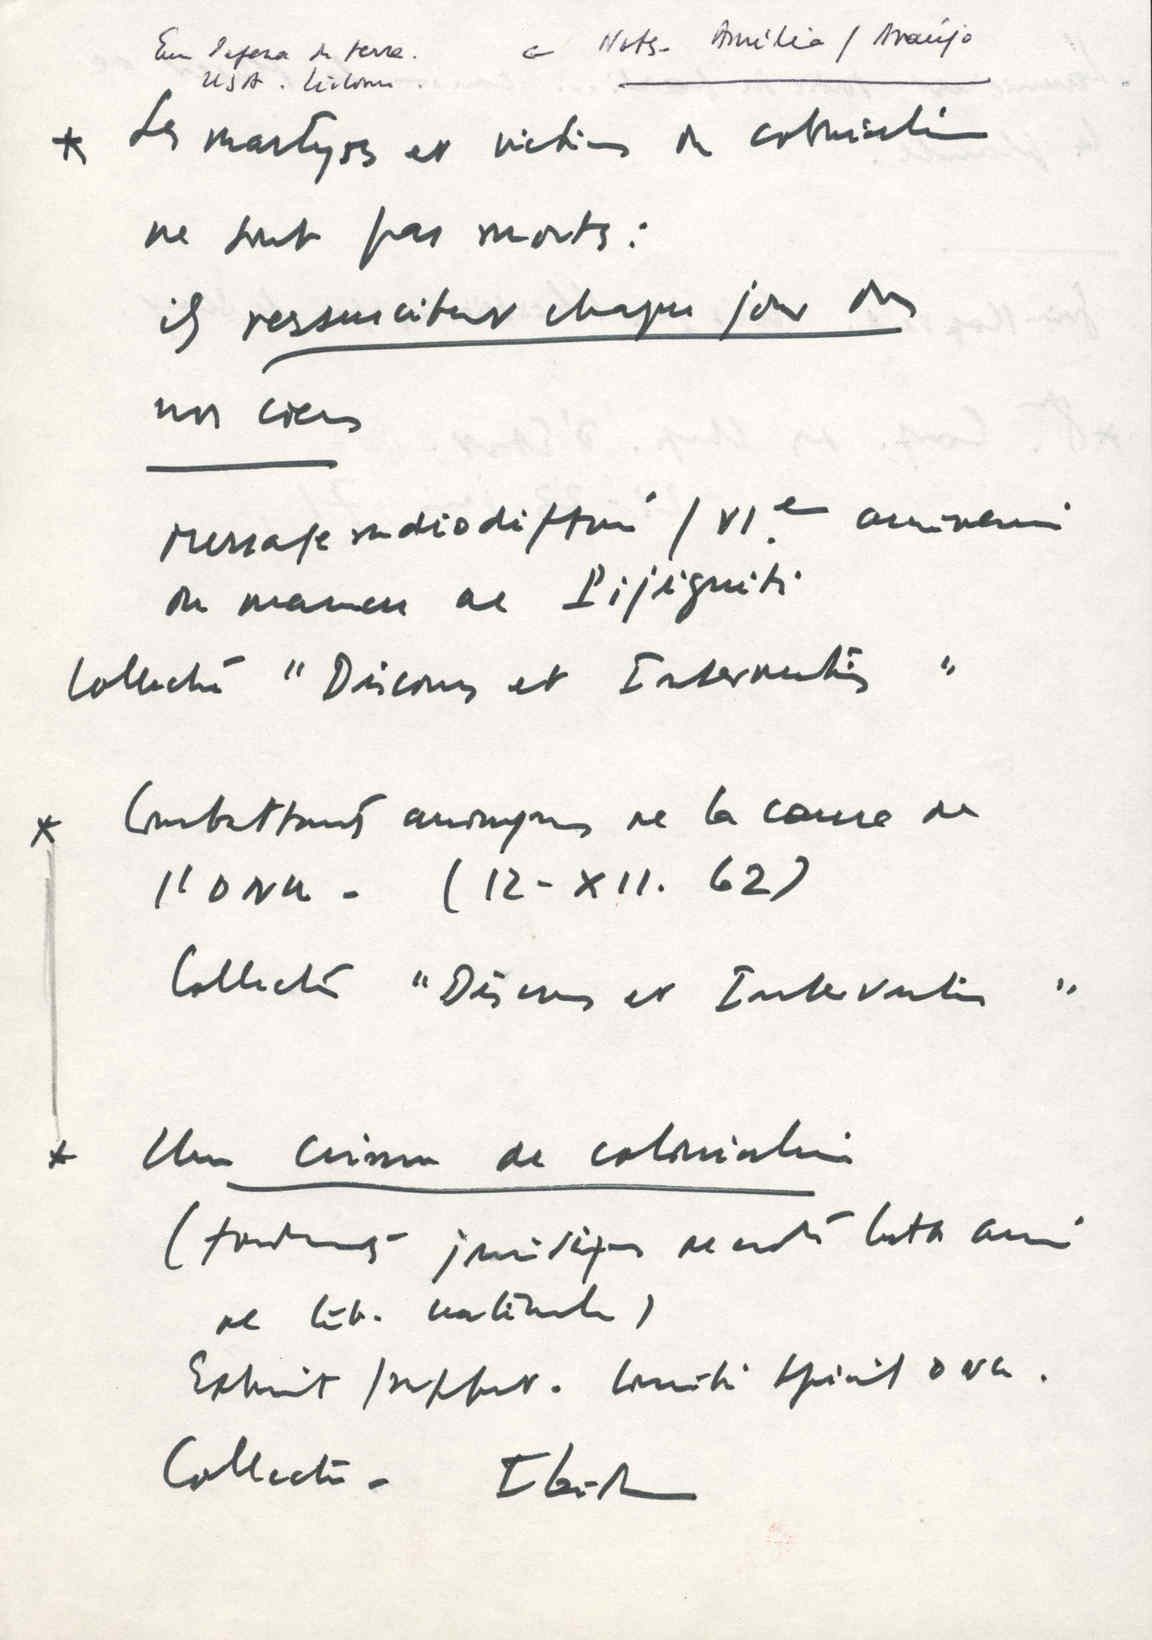 Em defesa da terra. ← Nots. Amélia / Araújo
USA. Lisboa.
* Les martyrs et victimes du colonialisme
ne sont pas morts:
ils ressuscitent chaque jour dans
nos cœurs
Message radiodiffusé / VI.e anniversaire
du massacre de Pijiguiti
Collection "Discours et Interventions"
* Combattants anonymes de la cause de
l'ONU - (12-XII. 62)
Collection "Discours et Interventions"
* Un crime de colonialisme
(fondements juridiques de notre lutte armée
de lib. nationale)
Extrait / rapport. Comité spécial ONU.
Collection - Ibid